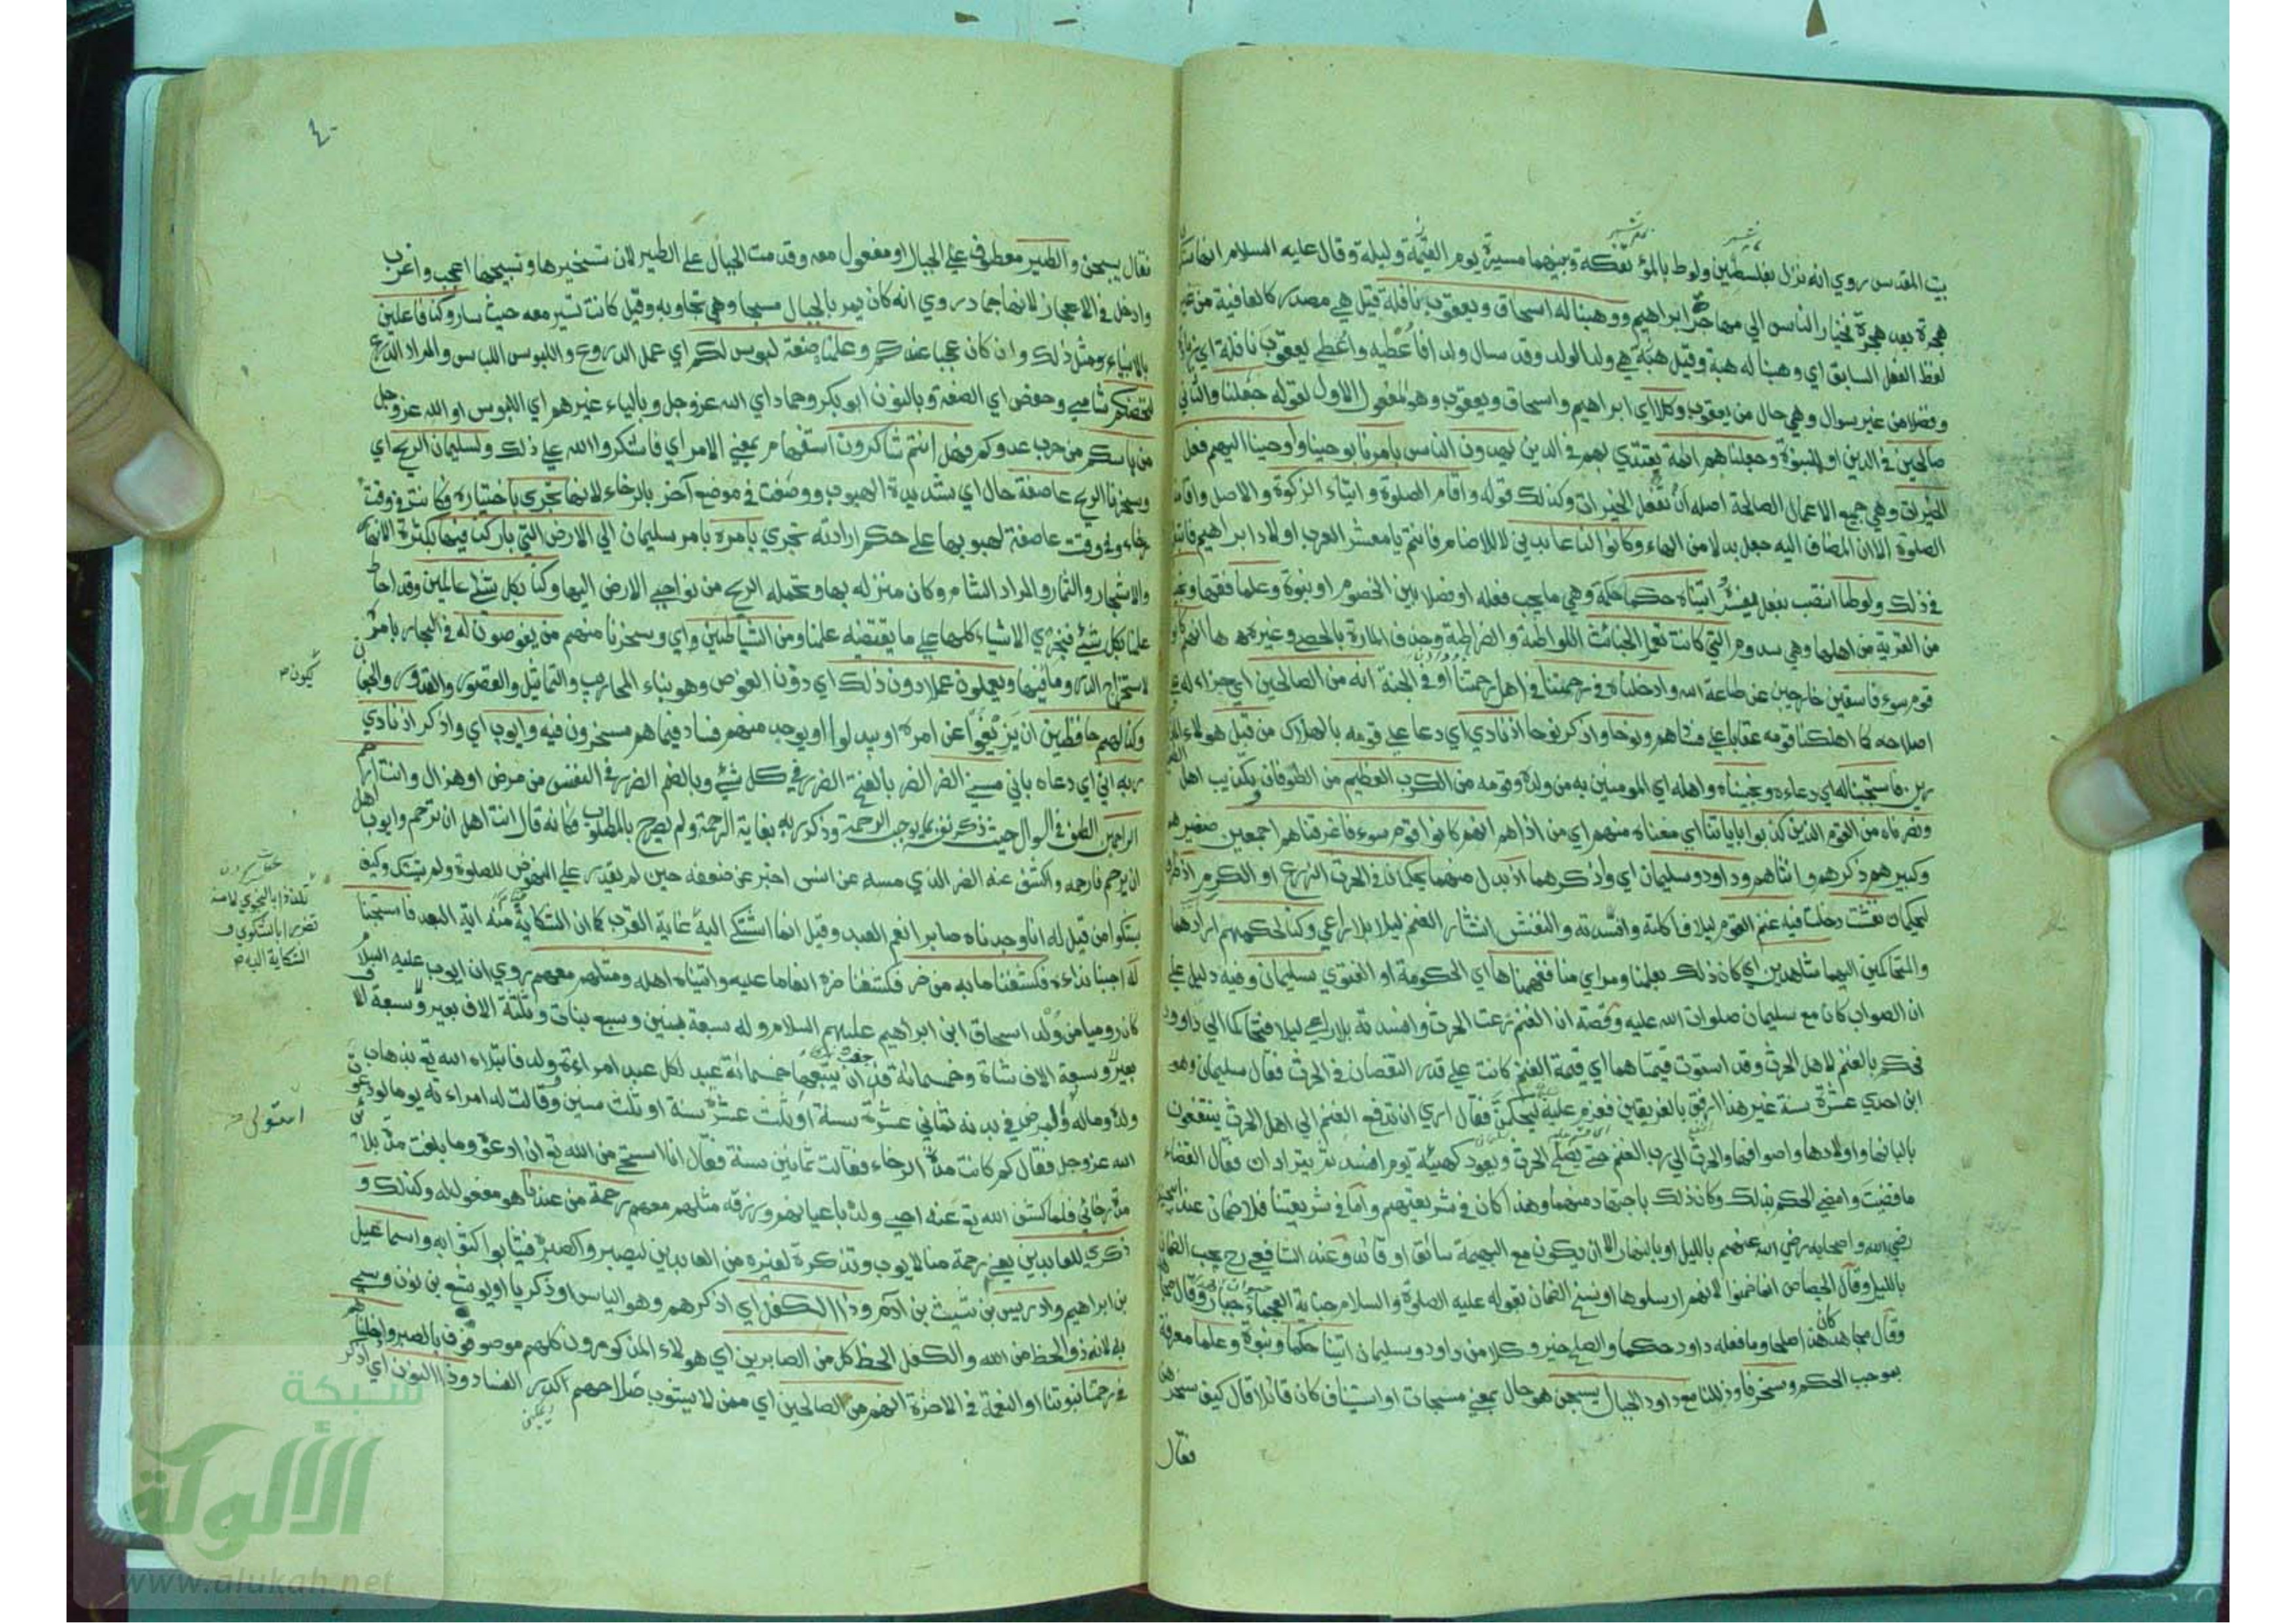 بيت المقدس روي انه نزل بفلسطين ولوط بالمؤتفكة وبينهما مسيرة يوم وليلة وقال عليه السلام انها ستكون
هجرة بعد هجرة فخيار الناس الي مهاجر ابراهيم ووهبنا له اسحاق ويعقوب نافلة قيل هي مصدر كالعافية من غير
لفظ الفعل السابق اي وهبنا له هبة وقيل هي ولد الولد وقد سال ولدا فاعطيه واعطي يعقوب نافلة اي زيادة
وفضلا من غير سوال وهي حال من يعقوب وكلا اي ابراهيم واسحاق ويعقوب وهو المفعول الاول لقوله جعلنا والثاني
صالحين في الدين او للنبوة وجعلناهم ائمة يقتدي بهم في الدين يهدون الناس بامرنا بوحينا واوحينا اليهم فعل
الخيرات وهي جميع الاعمال الصالحة اصله ان تفعل الخيرات وكذلك قوله واقام الصلوة وايتاء الزكوة والاصل واقامة
الصلوة الا ان المضاف اليه جعل بدلا من الهاء وكانوا لنا عابدين لا للاصنام فانتم يا معشر العرب اولاد ابراهيم فاتبعوه
في ذلك ولوطا انتصب بفعل يفسره اتيناه حكما حكمة وهي ما يجب فعله او فصلا بين الخصوم او نبوة وعلما فقها ونجيناه
من القرية من اهلها وهي سدوم التي كانت تعمل الخبائث اللواطة والضراطة وحذف المارة بالحصي وغيرها انهم كانوا
قوم سوء فاسقين خارجين عن طاعة الله وادخلناه في رحمتنا في اهل رحمتنا او في الجنة انه من الصالحين اي جزاء له علي
اصلاحه كما اهلكنا قومه عقابا علي فسادهم ونوحا واذكر نوحا اذ نادي اي دعا علي قومه بالهلاك من قبل هولاء المذكورين
فاستجبنا له اي دعاءه ونجيناه واهله اي المومنين به من ولده وقومه من الكرب العظيم من الطوفان وتكذيب اهل
ونصرناه من القوم الذين كذبوا باياتنا اي منعناه منهم اي من اذاهم انهم كانوا قوم سوء فاغرقناهم اجمعين صغيرهم
وكبيرهم ذكرهم وانثاهم وداود وسليمان اي واذكرهما اذ بدل منهما يحكمان في الحرث الزرع او الكرم اذ ظرف
ليحكمان نفشت دخلت فيه غنم القوم ليلا فاكلته وافسدته والنفش انتشار الغنم ليلا بلا راعي وكنا لحكمهم ارادهما
والمتحاكمين اليهما شاهدين اي كان ذلك بعلمنا ومراي منا ففهمناها اي الحكومة او الفتوي سليمان وفيه دليل علي
ان الصواب كان مع سليمان صلوات الله عليه وقصته ان الغنم رعت الحرث وافسدته بلا راعي ليلا فتحاكما الي داوود
فحكم بالغنم لاهل الحرث وقد استوت قيمتاهما اي قيمة الغنم كانت علي قدر النقصان في الحرث فقال سليمان وهو
ابن احدي عشرة سنة غير هذا ارفق بالفريقين فعزم عليه ليحكمن فقال اري ان تدفع الغنم الي اهل الحرث ينتفعون
بالبانها واولادها واصوافها والحرث الي رب الغنم حتي يصلح الحرث ويعود كهيئة يوم افسد ثم يترادان فقال القضاء
ما قضيت وامضي الحكم بذلك وكان ذلك باجتهاد منهما وهذا كان في شريعتهم واما في شريعتنا فلا ضمان عند ابي حنيفة
رضي الله واصحابه رضي الله عنهم بالليل او بالنهار الا ان يكون مع البهيمة سائق او قائد وعند الشافعي رح يجب الضمان
بالليل وقال الجصاص انما ضمنوا لانهم ارسلوها او نسخ الضمان بقوله عليه الصلوة والسلام جناية العجماء جبار
وقال مجاهد كان هذا صلحا وما فعله داود حكما والصلح خير وكلا من داود وسليمان اتينا حكما ونبوة وعلما معرفة
بموجب الحكم وسخرنا وذللنا مع داود الجبال يسبحن هو حال بمعني مسبحات او استيناف كان قائلا قال كيف سخرهن
فقال
٤٠
فقال يسبحن والطير معطوف علي الجبال او مفعول معه وقدمت الجبال علي الطير لان تسخيرها وتسبيحها اعجب واغرب
وادخل في الاعجاز لانها جماد روي انه كان يمر بالجبال مسبحا وهي تجاوبه وقيل كانت تسير معه حيث سار وكنا فاعلين
بالانبياء ومثل ذلك وان كان عجبا عندكم وعلمناه صنعة لبوس لكم اي عمل الدروع واللبوس اللباس والمراد الدرع
لتحصنكم شامي وحفص اي الصنعة وبالنون ابو بكر وحماد اي الله عز وجل وبالياء غيرهم اي اللبوس او الله عز وجل
من باسكم من حرب عدوكم فهل انتم شاكرون استفهام بمعني الامر اي فاشكروا الله علي ذلك ولسليمان الريح اي
وسخرنا الريح عاصفة حال اي شديدة الهبوب ووصفت في موضع آخر بالرخاء لانها تجري باختياره وكانت في وقت
رخاء وفي وقت عاصفة لهبوبها علي حكم ارادته تجري بامره بامر سليمان الي الارض التي باركنا فيها بكثرة الانهار
والاشجار والثمار والمراد الشام وكان منزله بها وتحمله الريح من نواحي الارض اليها وكنا بكل شي عالمين وقد احاط
علمنا بكل شيء فنجري الاشياء كلها علي ما يقتضيه علمنا ومن الشياطين واي وسخرنا منهم من يغوصون له في البحار بامره
لاستخراج الدر وما فيها ويعملون عملا دون ذلك اي دون الغوص وهو بناء المحاريب والتماثيل والقصور والقدور والجفان
وكنا لهم حافظين ان يزيغوا عن امره او يبدلوا او يوجد منهم فساد فيما هم مسخرون فيه وايوب اي واذكر اذ نادي
ربه اني اي دعاه باني مسني الضر الضر بالفتح الضرر في كل شيء وبالضم الضرر في النفس من مرض او هزال وانت ارحم
الراحمين الطف في السوال حيث ذكر نفسه بما يوجب الرحمة وذكر ربه بغاية الرحمة ولم يصرح بالمطلوب فكانه قال انت اهل ان ترحم وايوب اهل
ان يرحم فارحمه واكشف عنه الضر الذي مسه عن انس اخبر عن ضعفه حين لم يقدر علي النهوض للصلوة ولم يشتك وكيف
يشكو من قيل له انا وجدناه صابرا نعم العبد وقيل انما اشتكي اليه غاية القرب كما ان الشكاية منه اية البعد فاستجبنا
له اجبنا نداءه فكشفنا ما به من ضر فكشفنا ضره انعاما عليه واتيناه اهله ومثلهم معهم روي ان ايوب عليه السلام
كان روميا من ولد اسحاق ابن ابراهيم عليهم السلام وله سبعة بنين وسبع بنات وثلثة الاف بعير وسبعة الا
بعير وسبعة الاف شاة وخمسمائة فدان يتبعها خمسمائة عبد لكل عبد امراءة وولد فابتلاه الله تع بذهاب
ولده وماله ولمرض في بدنه ثماني عشرة سنة او ثلث عشرة سنة او ثلث سنين وقالت له امراءته يوما لو دعوت
الله عز وجل فقال كم كانت مدة الرخاء فقالت ثمانين سنة فقال انا استحي من الله تع ان ادعوه وما بلغت مدة بلائي
مدة رخائي فلما كشف الله تع عنه احيي ولده باعيانهم ورزقه مثلهم معهم رحمة من عندنا هو مفعول له وكذلك و
ذكري للعابدين يعني رحمة منا لايوب وتذكرة لغيره من العابدين ليصبروا كصبره فيثابوا كثوابه واسماعيل
بن ابراهيم وادريس بن شيث بن آدم وذا الكفل اي اذكرهم وهو الياس او ذكريا او يوشع بن نون وسمي
به لانه ذو الحظ من الله والكفل الحظ كل من الصابرين اي هولاء المذكورون كلهم موصوفون بالصبر وادخلناهم
في رحمتنا نبوتنا او النعمة في الاخرة انهم من الصالحين اي ممن لا يشوب صلاحهم اكدر الفساد وذا النون اي اذكر
يكون
تلذذا بالنجوي لا منه
تضررا بالشكوي و
الشكاية اليه
شبكة
الألوكة
www.alukah.net